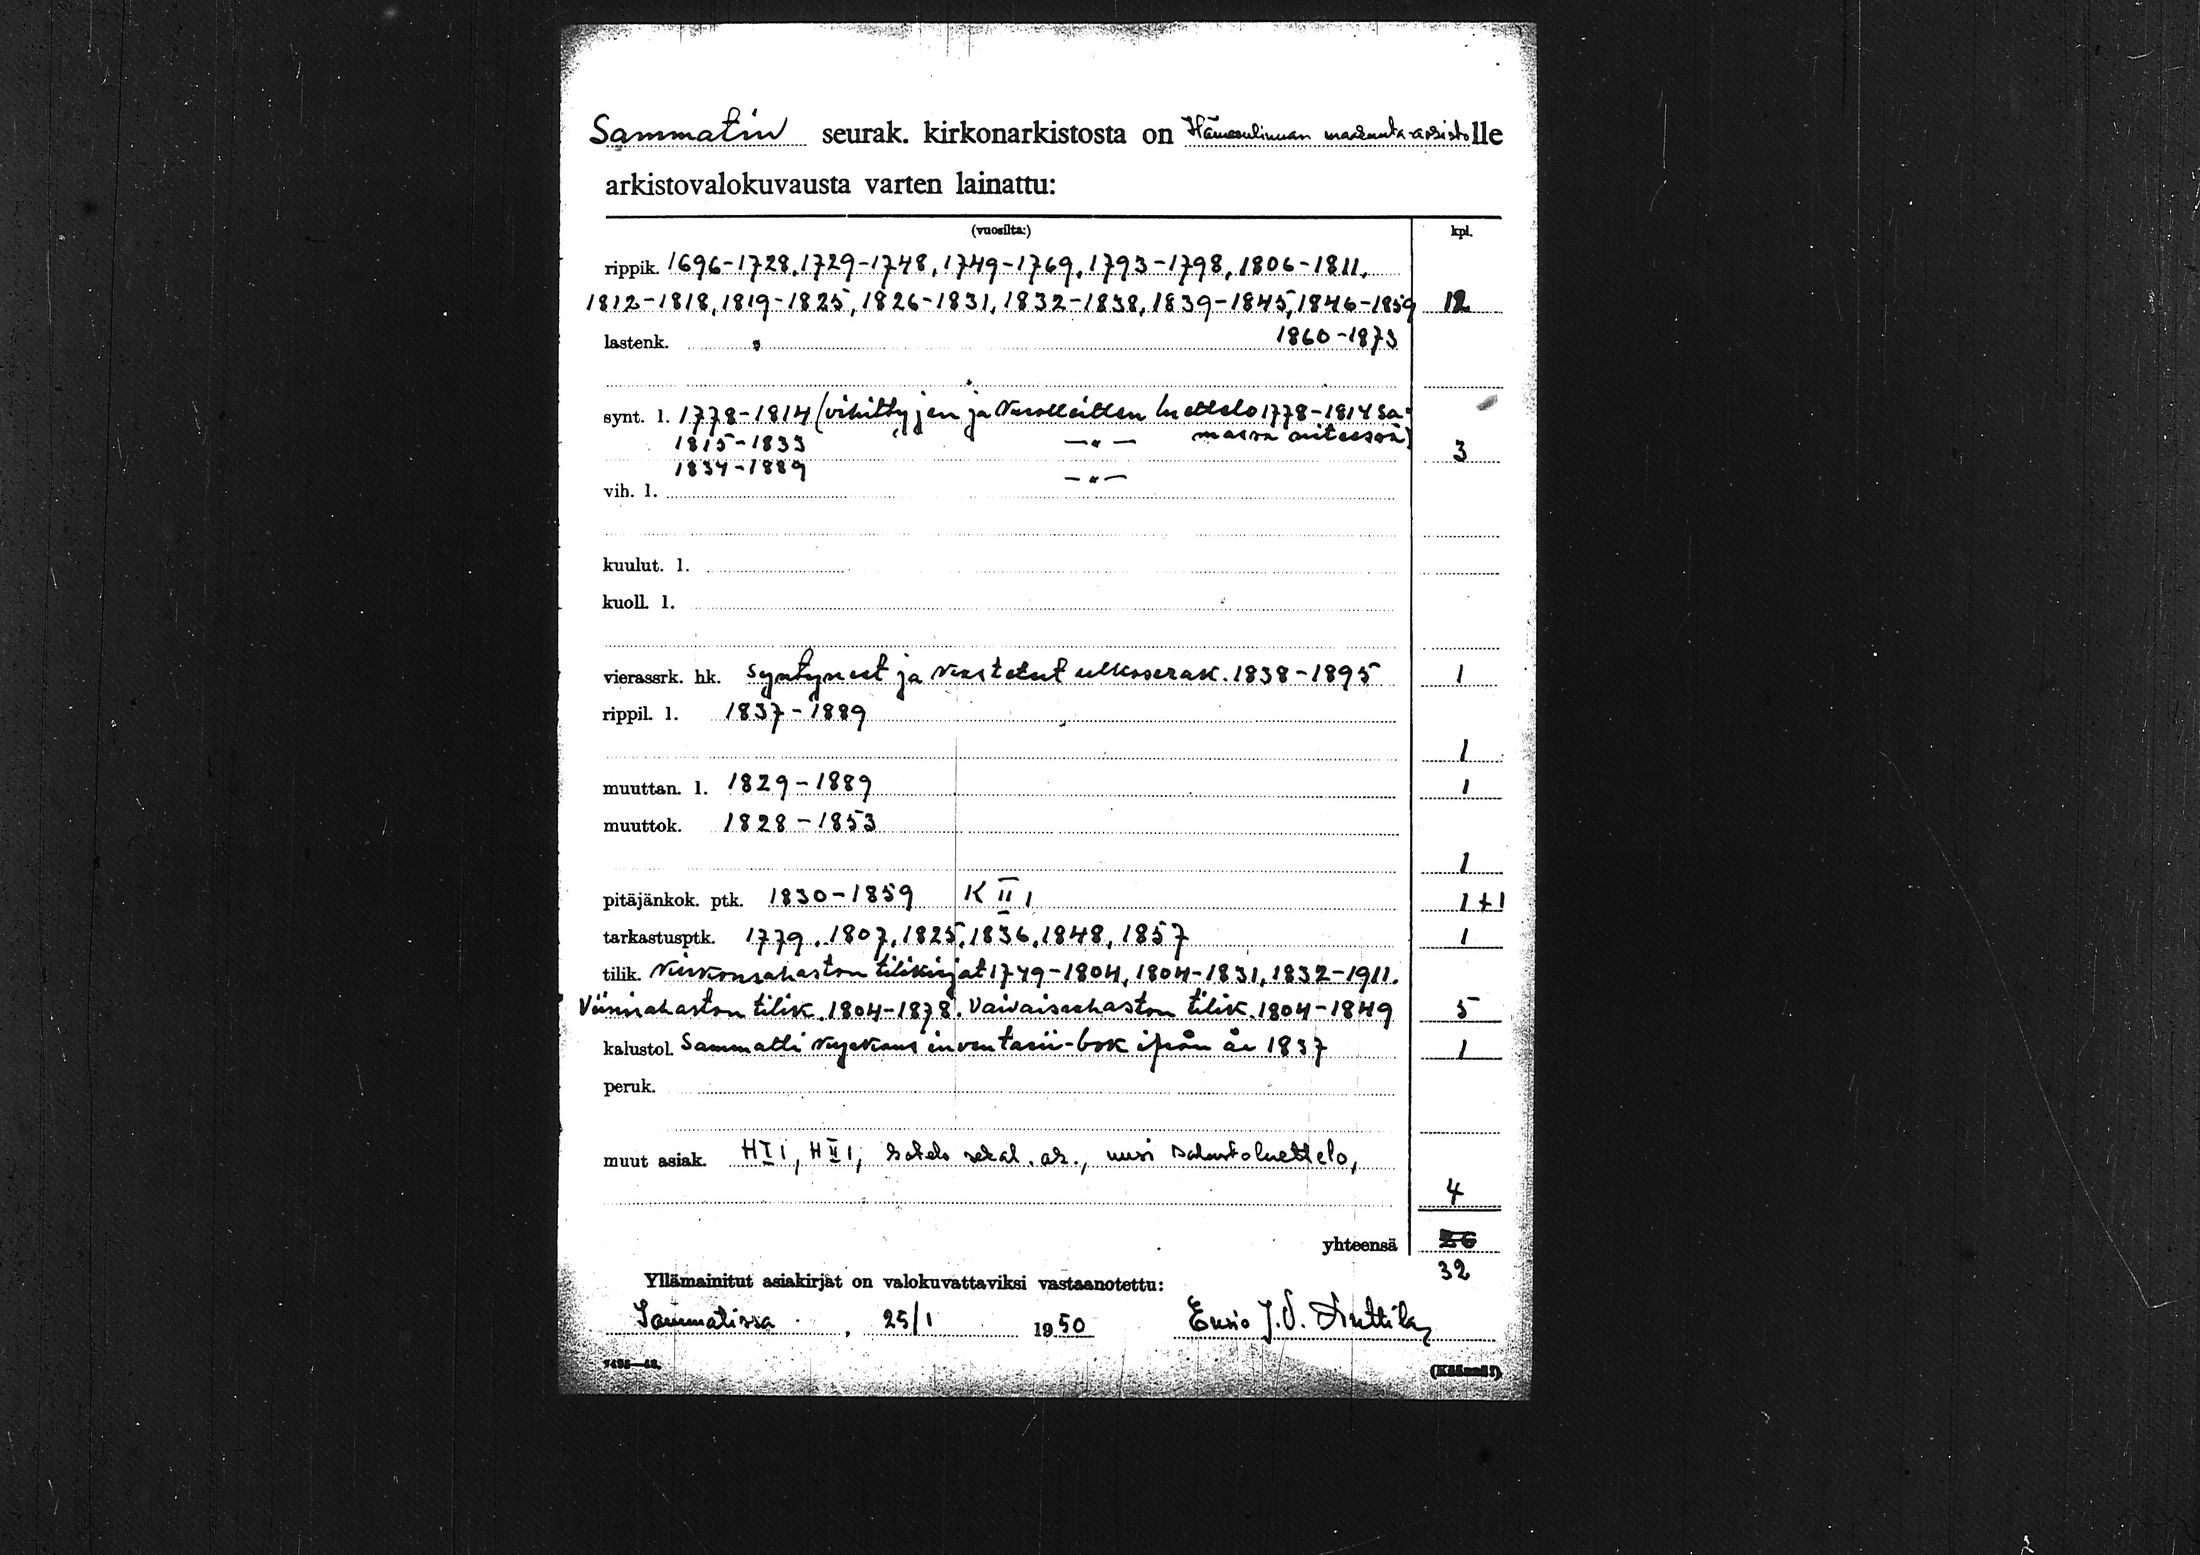 Sammatin seurak. kirkonarkistosta on Hämeenlinnan maakunta-arkistolle
arkistovalokuvausta varten lainattu:
(vuosilta:) kpl.
rippik. 1696-1728, 1729-1748, 1749-1769, 1793-1798, 1806-1811,
1812-1818, 1819-1825, 1826-1831, 1832-1838, 1839-1845, 1846-1859 12
lastenk. 1860-1873
synt. l. 1778-1814 (vihittyjen ja kuolleitten luettelo 1778-1814 sa-
1815-1833 -"- massa niteessä) 3
1834-1889 -"-
vih. l.
kuulut. l.
kuoll. l.
vierassrk. hk. syntyneet ja kastetut ulkoserak. 1838-1895 1
rippil. l. 1837-1889
1
muuttan. l. 1829-1889 1
muuttok. 1828-1853
1
pitäjänkok. ptk. 1830-1859 K II 1 1+1
tarkastusptk. 1779, 1807, 1825, 1836, 1848, 1857 1
tilik. Kirkonrahaston tilikirjat 1749-1804, 1804-1831, 1832-1911.
Viinirahaston tilik. 1804-1878. Vaivaisrahaston tilik. 1804-1849 5
kalustol. Sammatti kyrkans inventarii-bok ifrån år 1837 1
peruk.
muut asiak. H I 1, H II 1, kotelo sekal. as., uusi kalustoluettelo,
4
yhteensä 26
32
Yllämainitut asiakirjat on valokuvattaviksi vastaanotettu:
Sammatissa, 25/1 1950 Ensio J.V. Anttila
(Käännä!)